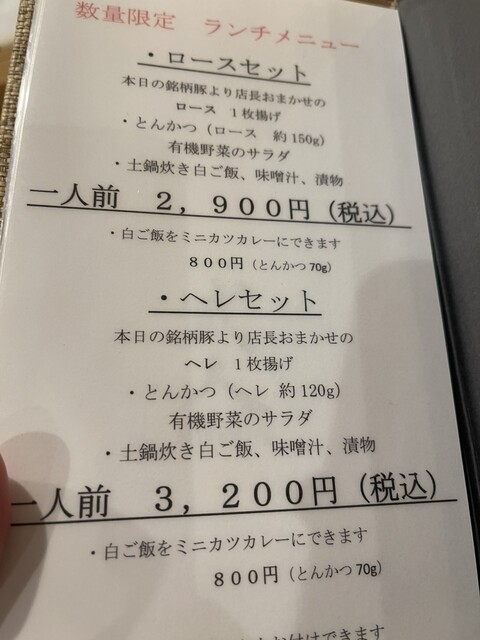 数量限定 ランチメニュー
・ロースセット
本日の銘柄豚より店長おまかせの
ロース １枚揚げ
・とんかつ（ロース 約150g）
有機野菜のサラダ
・土鍋炊き白ご飯、味噌汁、漬物
一人前 ２，９００円（税込）
・白ご飯をミニカツカレーにできます
８００円（とんかつ70g）
・ヘレセット
本日の銘柄豚より店長おまかせの
ヘレ １枚揚げ
・とんかつ（ヘレ 約120g）
有機野菜のサラダ
・土鍋炊き白ご飯、味噌汁、漬物
一人前 ３，２００円（税込）
・白ご飯をミニカツカレーにできます
８００円（とんかつ70g）
お付けできます